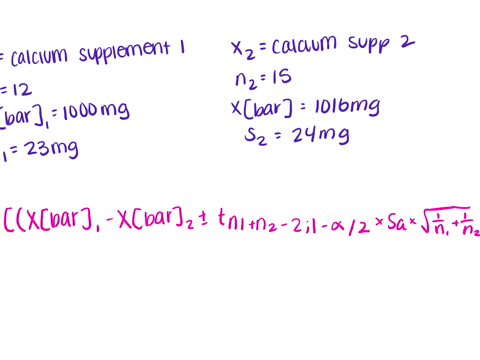 = calcium supplement 1
= 12
[bar]₁ = 1000mg
₁ = 23mg
X₂ = calcium supp 2
n₂ = 15
X[bar] = 1016mg
S₂ = 24mg
[(X[bar]₁ - X[bar]₂ ± t n1+n2-2;1-α/2 * Sa * √1/n₁ + 1/n₂